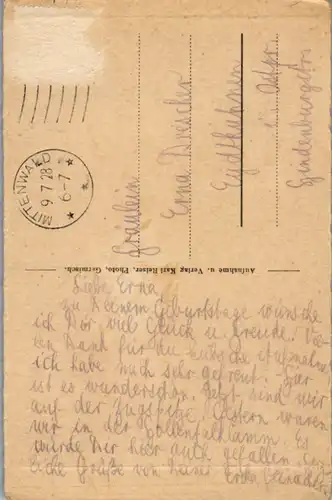 MITTENWALD
9.7.28
6-7
Fräulein
Erna Drescher
Eydtkuhnen
i. Ostpr.
Hindenburgstr.
Aufnahme u. Verlag Karl Reiser, Photo, Garmisch.
Liebe Erna
zu Deinem Geburtstage wünsche
ich Dir viel Glück u. Freude. Vie-
len Dank für die hübsche
ich habe mich sehr gefreut. Hier
ist es wunderschön. Jetzt sind wir
auf der Zugspitze. Gestern waren
wir in der Höllentalklamm. Es
würde Dir hier auch gefallen. Herz-
liche Grüße von Deiner Erika